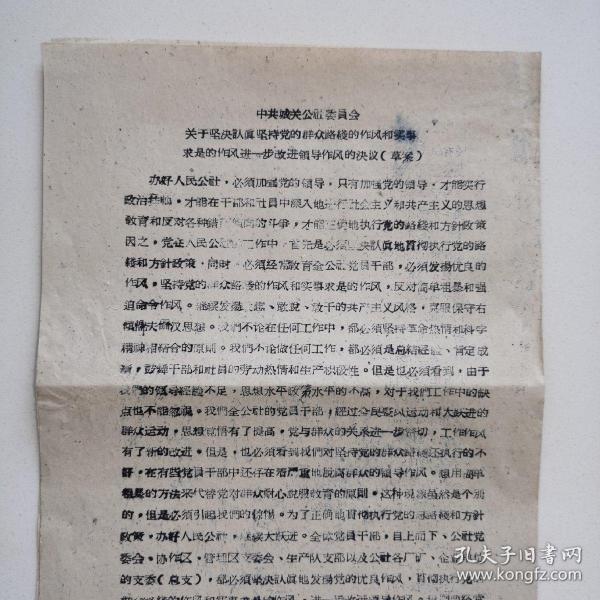 中共城关公社委員会
关于坚决认眞坚持党的群众路綫的作风和实事
求是的作风进一步改进領导作风的决议（草案）
办好人民公社，必须加强党的领导，只有加强党的领导，才能实行
政治挂帅，才能在干部和社員中深入地进行社会主义和共产主义的思想
教育和反对各种錯誤傾向的斗爭，才能正确地执行党的路綫和方針政策
因之，党在人民公社的工作中，首先是必须坚决认眞地貫彻执行党的路
綫和方針政策，同时，必须经常教育全公社党員干部，必须发揚优良的
作风，坚持党的群众路綫的作风和实事求是的作风，反对简单粗暴和强
迫命令作风。继續发揚敢想、敢說、敢干的共产主义风格，克服保守右
傾 思想。我們不論在任何工作中，都必须坚持革命热情和科学
精神相結合的原则。我們不論做任何工作，都必須是总結经驗、肯定成
績，发揮干部和社員的劳动热情和生产积极性。但是也必须看到，由于
我們的領导经驗不足，思想水平政策水平的不高，对于我們工作中的缺
点也不能忽視。我們全公社的党員干部，經过全民整风运动和大跃进的
群众运动，思想觉悟有了提高，党与群众的关系进一步密切，工作作风
有了新的改进。但是，也必须看到我們对坚持党的群众路綫还执行的不
好，在有些党員干部中还存在着严重地脱离群众的領导作风。想用简单
粗暴的方法来代替党对群众耐心説服教育的原则。这种現象虽然是个别
的，但是必须引起我們的警惕。为了正确地貫彻执行党的路綫和方針
政策，办好人民公社，继續大跃进。全体党員干部，自上而下、公社党
委会、协作区、管理区支委会、生产队支部以及公社各厂矿、企
的支委（总支），都必须坚决认眞地发揚党的优良作风，貫彻执行
群众路綫的作风和实事求是的作风，进一步改
孔夫子旧书网
www.kongfz.com